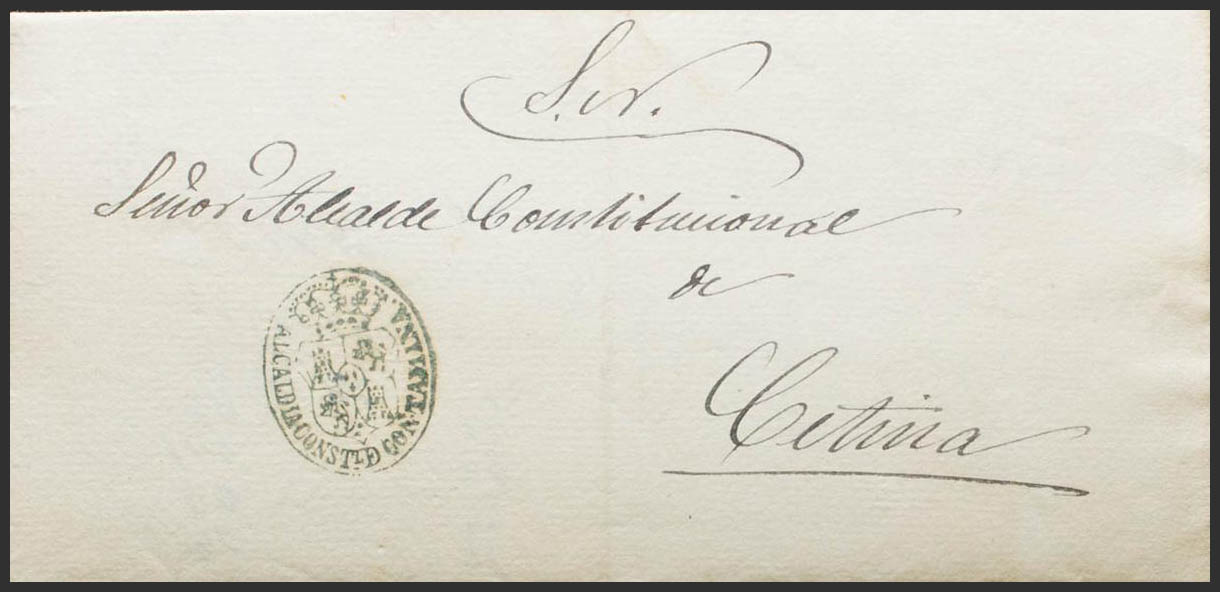 S.N.
Señor Alcalde Constitucional
de
Cetina
ALCALDIA CONST.L D CONTAMINA